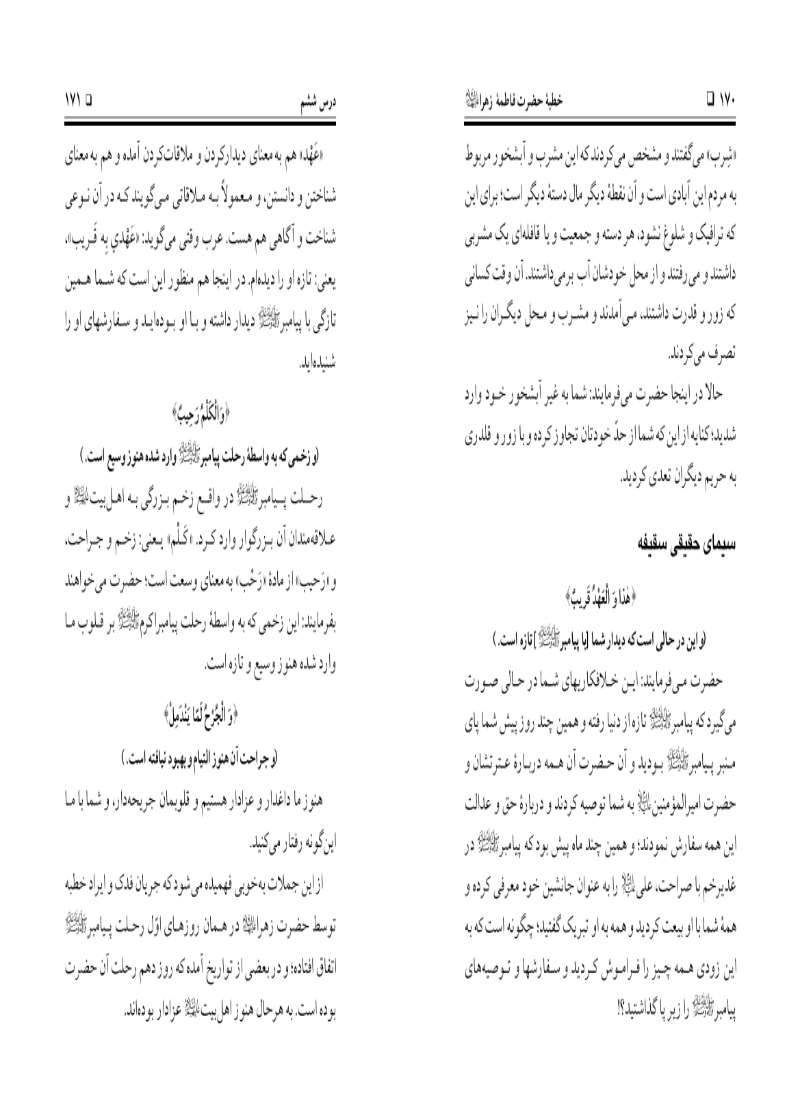 ۱۷۰ □ خطبهٔ حضرت فاطمهٔ زهرا
«شِرب» می‌گفتند و مشخص می‌کردند که این مشرب و آبشخور مربوط
به مردم این آبادی است و آن نقطهٔ دیگر مال دستهٔ دیگر است؛ برای این
که ترافیک و شلوغ نشود، هر دسته و جمعیت و یا قافله‌ای یک مشربی
داشتند و می‌رفتند و از محل خودشان آب برمی‌داشتند. آن وقت کسانی
که زور و قدرت داشتند، می‌آمدند و مشرب و محل دیگران را نیز
تصرف می‌کردند.
حالا در اینجا حضرت می‌فرمایند: شما به غیر آبشخور خود وارد
شدید؛ کنایه از این که شما از حدّ خودتان تجاوز کرده و با زور و قلدری
به حریم دیگران تعدی کردید.
سیمای حقیقی سقیفه
﴿هٰذا وَ الْعَهْدُ قَرِیبٌ﴾
(و این در حالی است که دیدار شما [با پیامبرﷺ] تازه است.)
حضرت می‌فرمایند: این خلافکاریهای شما در حالی صورت
می‌گیرد که پیامبرﷺ تازه از دنیا رفته و همین چند روز پیش شما پای
منبر پیامبرﷺ بودید و آن حضرت آن همه دربارهٔ عترتشان و
حضرت امیرالمؤمنین به شما توصیه کردند و دربارهٔ حق و عدالت
این همه سفارش نمودند؛ و همین چند ماه پیش بود که پیامبرﷺ در
غدیرخم با صراحت، علی را به عنوان جانشین خود معرفی کرده و
همهٔ شما با او بیعت کردید و همه به او تبریک گفتید؛ چگونه است که به
این زودی همه چیز را فراموش کردید و سفارشها و توصیه‌های
پیامبرﷺ را زیر پا گذاشتید؟!
درس ششم □ ۱۷۱
«عَهْد» هم به معنای دیدارکردن و ملاقات‌کردن آمده و هم به معنای
شناختن و دانستن، و معمولاً به ملاقاتی می‌گویند که در آن نوعی
شناخت و آگاهی هم هست. عرب وقتی می‌گوید: «عَهْدي بِه قَریب»،
یعنی: تازه او را دیده‌ام. در اینجا هم منظور این است که شما همین
تازگی با پیامبرﷺ دیدار داشته و با او بوده‌اید و سفارشهای او را
شنیده‌اید.
﴿وَالْكَلْمُ رَحِیبٌ﴾
(و زخمی که به واسطهٔ رحلت پیامبرﷺ وارد شده هنوز وسیع است.)
رحلت پیامبرﷺ در واقع زخم بزرگی به اهل‌بیت و
علاقه‌مندان آن بزرگوار وارد کرد. «کَلْم» یعنی: زخم و جراحت،
و «رَحیب» از مادهٔ «رَحُب» به معنای وسعت است؛ حضرت می‌خواهند
بفرمایند: این زخمی که به واسطهٔ رحلت پیامبراکرمﷺ بر قلوب ما
وارد شده هنوز وسیع و تازه است.
﴿وَ الْجُرْحُ لَمّا یَنْدَمِلْ﴾
(و جراحت آن هنوز التیام و بهبود نیافته است.)
هنوز ما داغدار و عزادار هستیم و قلوبمان جریحه‌دار، و شما با ما
این‌گونه رفتار می‌کنید.
از این جملات به‌خوبی فهمیده می‌شود که جریان فدک و ایراد خطبه
توسط حضرت زهرا در همان روزهای اوّل رحلت پیامبرﷺ
اتفاق افتاده؛ و در بعضی از تواریخ آمده که روز دهم رحلت آن حضرت
بوده است. به هرحال هنوز اهل‌بیت عزادار بوده‌اند.